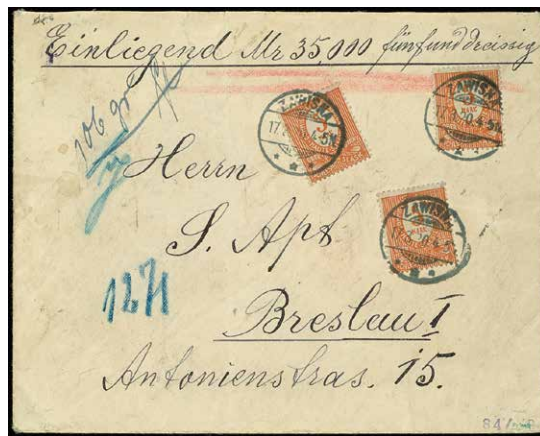 Einliegend Mr 35,000 fünfunddreissig
106 gr
ZAWISNA
ZAWISNA
ZAWISNA
Herrn
S. Apt
1271
Breslau I
Antonienstras. 15.